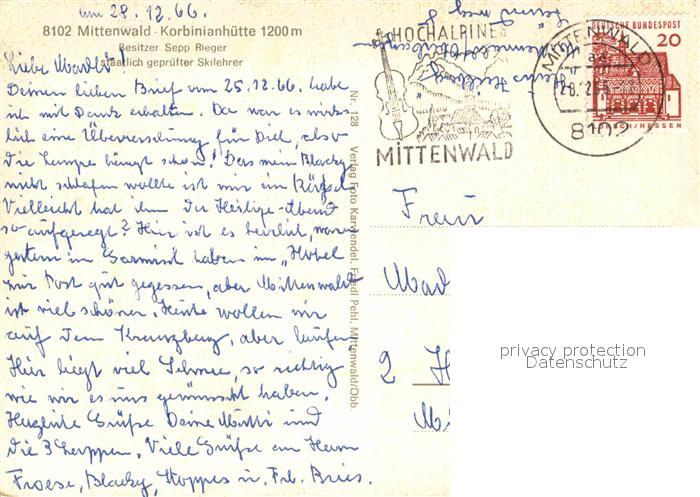 am 28.12.66.
8102 Mittenwald - Korbinianhütte 1200 m
Besitzer Sepp Rieger
staatlich geprüfter Skilehrer
Liebe
Deinen lieben Brief vom 25.12.66. habe
ich mit Dank erhalten. Das war es wirk-
lich eine Überraschung für Dich, also
die Lampe hängt schon! Dass mein Blacky
nicht schlafen wollte ist mir ein Rätsel
Vielleicht hat ihn der Heilige-Abend
so aufgeregt? Hier ist es herrlich, waren
gestern in Garmisch haben im "Hotel
zur Post gut gegessen, aber Mittenwald
ist viel schöner. Heute wollen wir
auf den Kranzberg, aber laufen,
Hier liegt viel Schnee, so richtig
wie wir es uns gewünscht haben.
Herzliche Grüße Deine und
die 3 Viele Grüße an Herrn
Froese, Blacky, u. Frl.
Nr. 128 Verlag Foto Karwendel, Friedl Pehl, Mittenwald/Obb.
HOCHALPINE
MITTENWALD
MITTENWALD
8102
DEUTSCHE BUNDESPOST
20
/HESSEN
Frau
2 H
privacy protection
Datenschutz